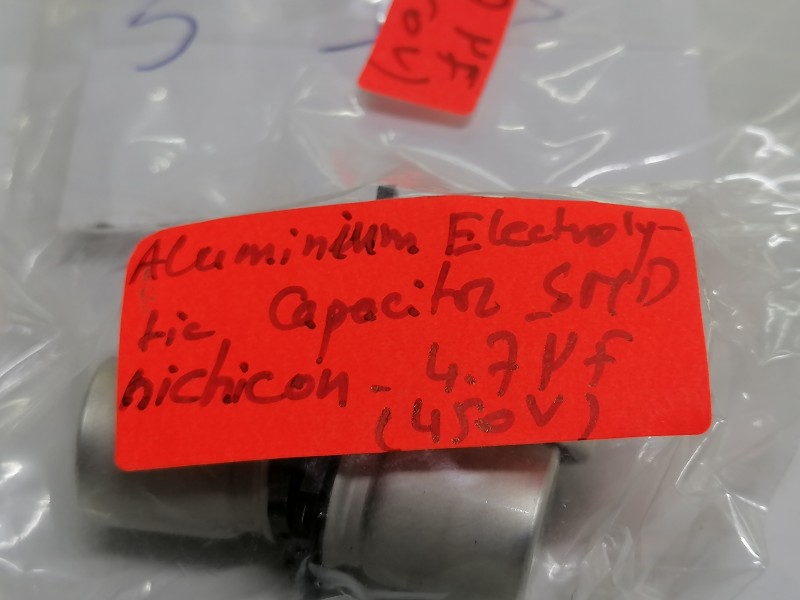 5
µF
0V)
Aluminium Electroly-
tic Capacitor SMD
nichicon - 4.7 µf
(450V)